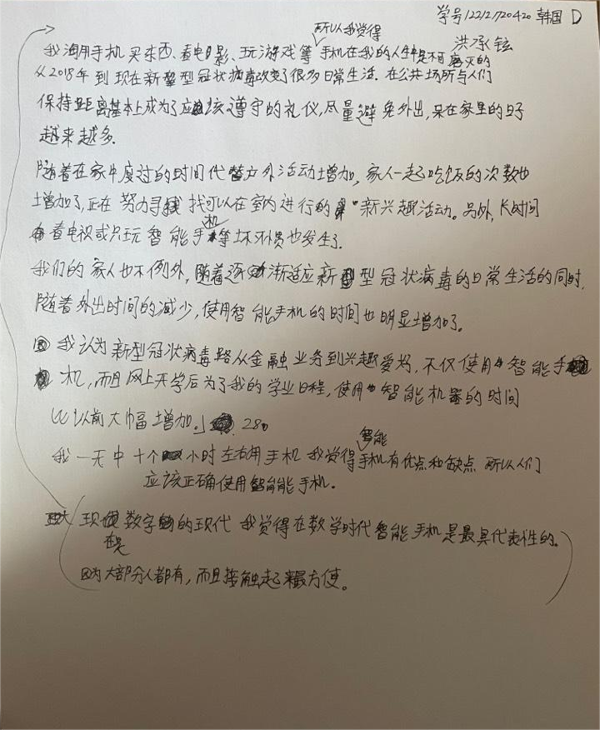 学号122121720420 韩国 D
洪承铉
所以我觉得
我通用手机买东西、看电影、玩游戏等 手机在我的人生中是不可磨灭的
从2018年到现在新型冠状病毒改变了很多日常生活. 在公共场所与人们
保持距离基本上成为了应该遵守的礼仪,尽量避免外出,呆在家里的日子
越来越多.
随着在家中度过的时间代替户外活动增加,家人一起吃饭的次数也
增加了,正在努力寻找可以在室内进行的新兴趣活动。另外,长时间
看电视或只玩智能手机等坏习惯也发生了.
我们的家人也不例外,随着逐渐适应新型冠状病毒的日常生活的同时,
随着外出时间的减少,使用智能手机的时间也明显增加了。
我认为新型冠状病毒路从金融业务到兴趣爱好,不仅使用智能手
机,而且网上开学后为了我的学业日程,使用智能机器的时间
比以前大幅增加.」 280
我一天中十个小时左右用手机 我觉得智能手机有优点和缺点 所以人们
应该正确使用智能手机。
现在是数字的现代 我觉得在数学时代智能手机是最具代表性的。
因为大部分人都有,而且接触起来最方便。